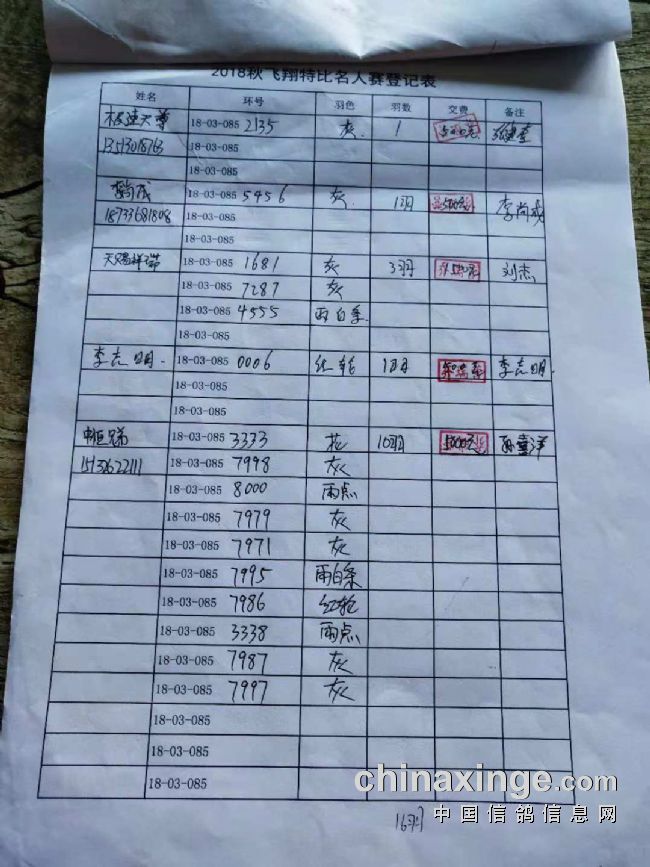 2018秋飞翔特比名人赛登记表
姓名 环号 羽色 羽数 交费 备注
极速天尊 18-03-085 2135 灰. 1
13513018763 18-03-085
18-03-085
李尚戎 18-03-085 5456 灰. 1羽 500元 李尚戎
18733681808 18-03-085
18-03-085
天赐祥瑞 18-03-085 1681 灰 3羽 刘杰
18-03-085 7287 灰
18-03-085 4555 雨白条.
18-03-085
李志明. 18-03-085 0006 红轮 1羽 李志明.
18-03-085
18-03-085
18-03-085 3333 花 10羽 5000元
15132622111 18-03-085 7998 灰
18-03-085 8000 雨点
18-03-085 7979 灰
18-03-085 7971 灰
18-03-085 7995 雨白条
18-03-085 7986 红轮
18-03-085 3338 雨点
18-03-085 7987 灰
18-03-085 7997 灰
18-03-085
18-03-085
18-03-085
chinaxinge.com
中国信鸽信息网
16羽